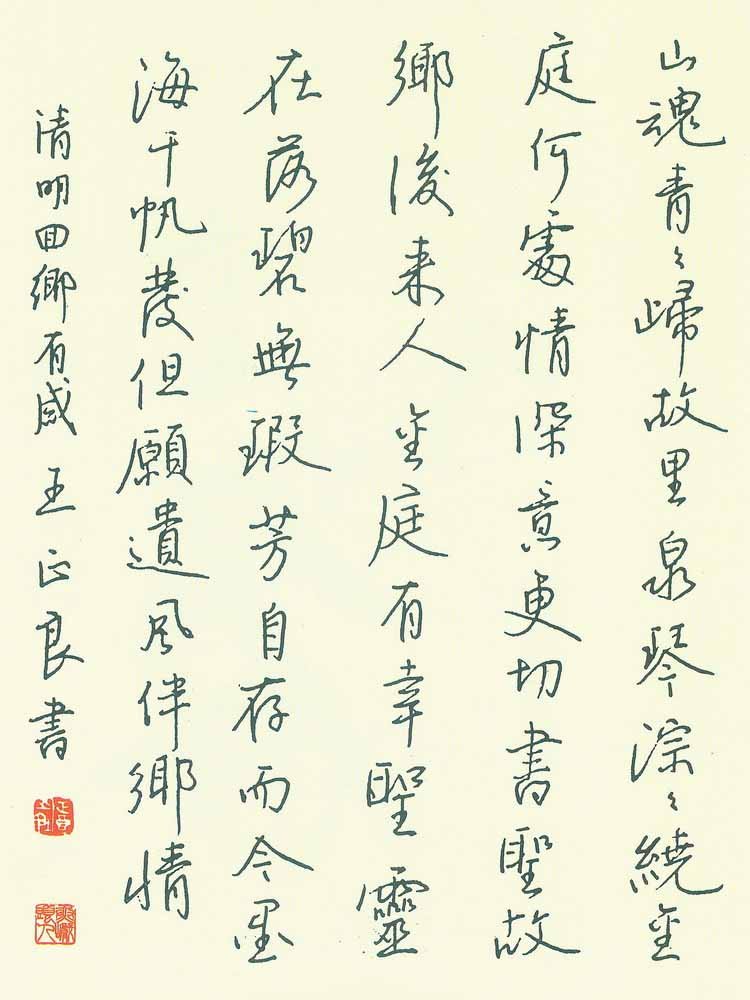 山魂青々歸故里泉琴淙々繞金
庭何處情深意更切書聖故
鄉後來人金庭有幸聖靈
在落碧無瑕芳自存而今墨
海千帆發但願遺風伴鄉情
清明回鄉有感王正良書